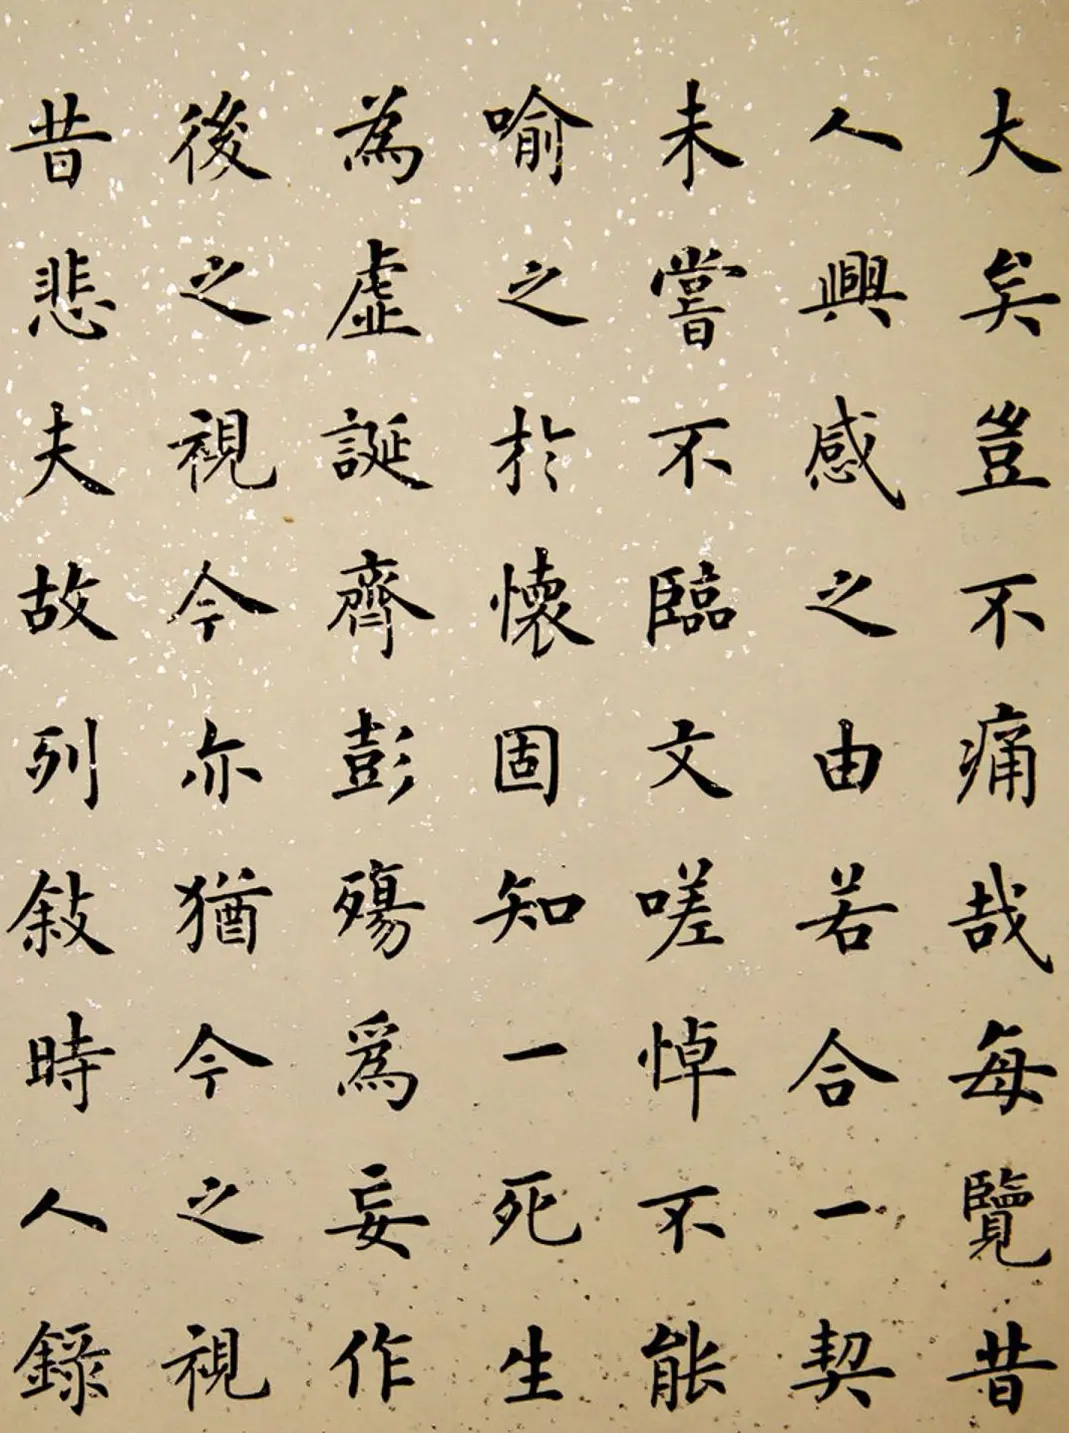 大矣豈不痛哉每覽昔
人興感之由若合一契
未嘗不臨文嗟悼不能
喻之於懷固知一死生
為虛誕齊彭殤爲妄作
後之視今亦猶今之視
昔悲夫故列敍時人錄